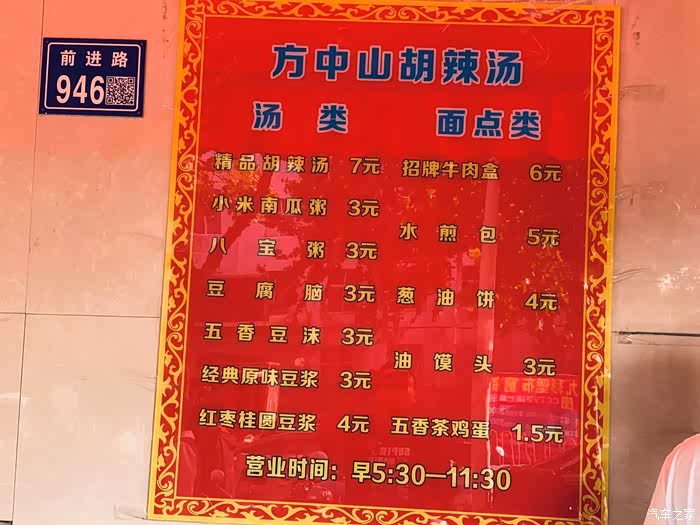 前进路
946
方中山胡辣汤
汤类 面点类
精品胡辣汤 7元 招牌牛肉盒 6元
小米南瓜粥 3元
水煎包 5元
八宝粥 3元
豆腐脑 3元 葱油饼 4元
五香豆沫 3元
油馍头 3元
经典原味豆浆 3元
红枣桂圆豆浆 4元 五香茶鸡蛋 1.5元
营业时间：早5:30—11:30
汽车之家